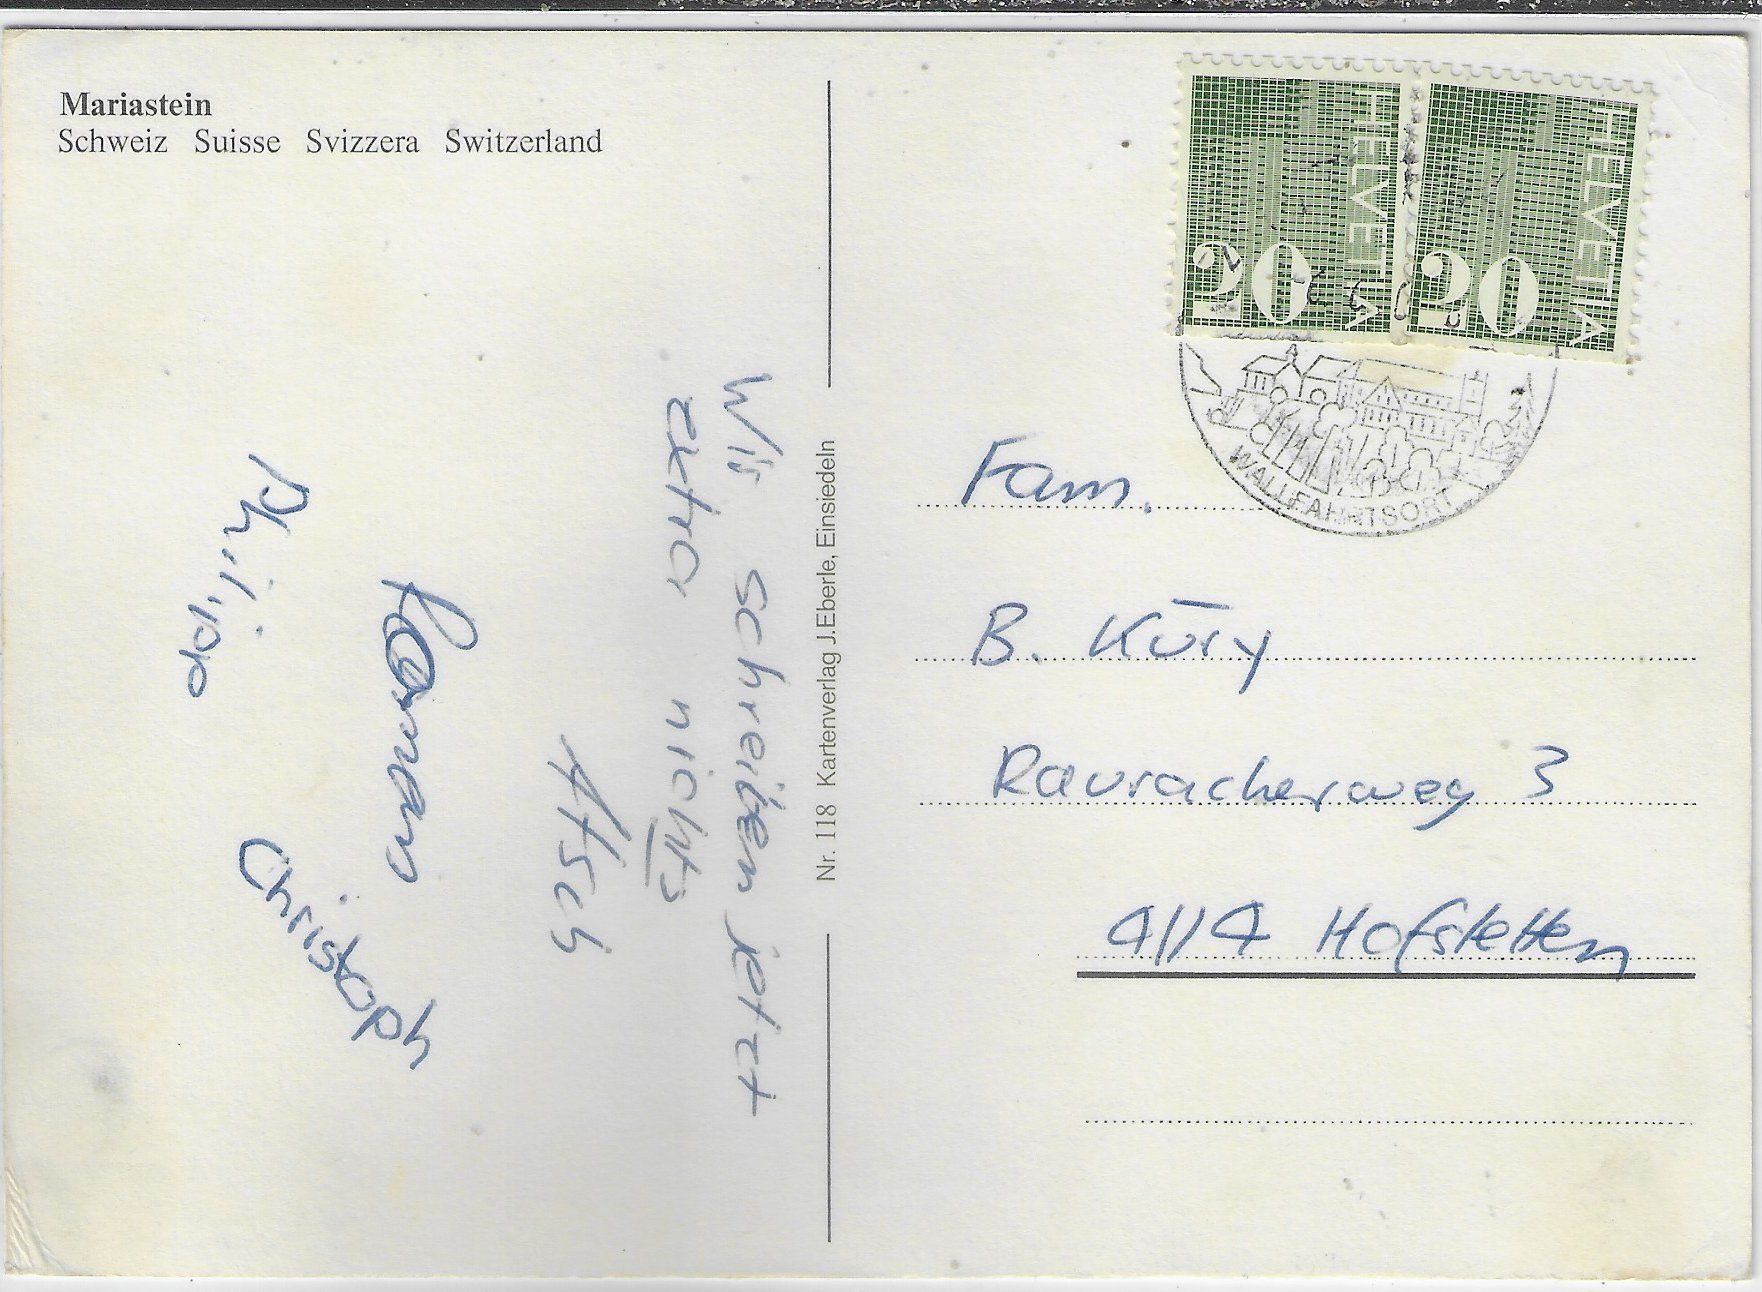 Mariastein
Schweiz Suisse Svizzera Switzerland
Wir schreiben jetzt
extra nichts
Ätsch
Roman
Philipp
Christoph
Nr. 118 Kartenverlag J.Eberle, Einsiedeln
HELVETIA
20
HELVETIA
20
WALLFAHRTSORT
Fam.
B. Küry
Rauracherweg 3
4114 Hofstetten